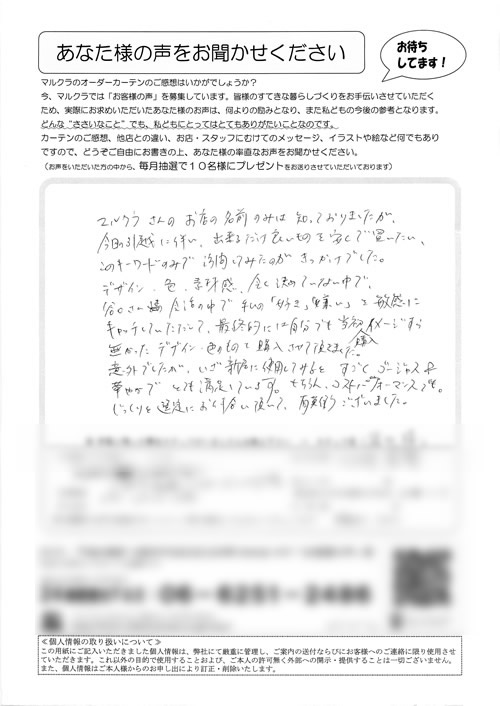 あなた様の声をお聞かせください
お待ち
してます！
マルクラのオーダーカーテンのご感想はいかがでしょうか？
今、マルクラでは「お客様の声」を募集しています。皆様のすてきな暮らしづくりをお手伝いさせていただく
ため、実際にお求めいただいたあなた様のお声は、何よりの励みとなり、また私どもの今後の参考となります。
どんな“ささいなこと”でも、私どもにとってはとてもありがたいことなのです。
カーテンのご感想、他店との違い、お店・スタッフにむけてのメッセージ、イラストや絵など何でもあり
ですので、どうぞご自由にお書きの上、あなた様の率直なお声をお聞かせください。
（お声をいただいた方の中から、毎月抽選で１０名様にプレゼントをお送りさせていただいております）
マルクラさんのお店の名前のみは知っておりましたが、
今回の引越に伴い、出来るだけ良いものを安くで買いたい、
このキーワードのみで訪問してみたのがきっかけでした。
デザイン・色・素材感、全く決めていない中で、
会話の中で私の「好き」「嫌い」を敏感に
キャッチしていただいて、最終的には自分でも当初イメージすら
無かったデザイン・色のものを購入させて頂きました。
購入
意外でしたが、いざ新居に使用してみるとすごくゴージャス&
華やかでとても満足しています。もちろん、コストパフォーマンスも。
じっくりと選定におつき合い頂いて、有難うございました。
06-6251-2486
≪個人情報の取り扱いについて≫
この用紙にご記入いただきました個人情報は、弊社にて厳重に管理し、ご案内の送付ならびにお客様へのご連絡に限り使用させ
ていただきます。これ以外の目的で使用することおよび、ご本人の許可無く外部への開示・提供することは一切ございません。
また、個人情報はご本人様からのお申し出により訂正・削除いたします。